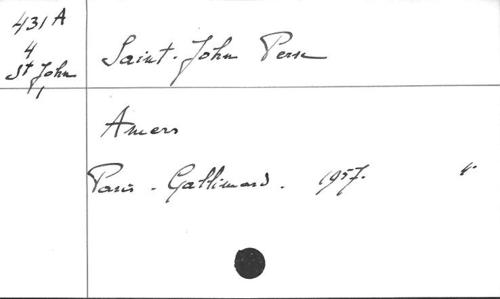 431 A
4
St John
1
Saint-John Perse
Amers
Paris - Gallimard. 1957.